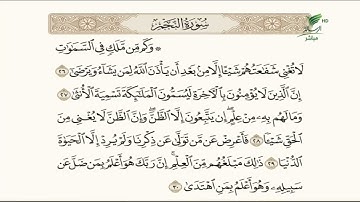 سورة النجم
HD
مباشر
* وكم من ملك في السموات
لا تغني شفعتهم شيئا إلا من بعد أن يأذن الله لمن يشاء ويرضى ٢٦
إن الذين لا يؤمنون بالآخرة ليسمون الملئكة تسمية الأنثى ٢٧
وما لهم به من علم إن يتبعون إلا الظن وإن الظن لا يغني من
الحق شيئا ٢٨ فأعرض عن من تولى عن ذكرنا ولم يرد إلا الحيوة
الدنيا ٢٩ ذلك مبلغهم من العلم إن ربك هو أعلم بمن ضل عن
سبيله وهو أعلم بمن اهتدى ٣٠